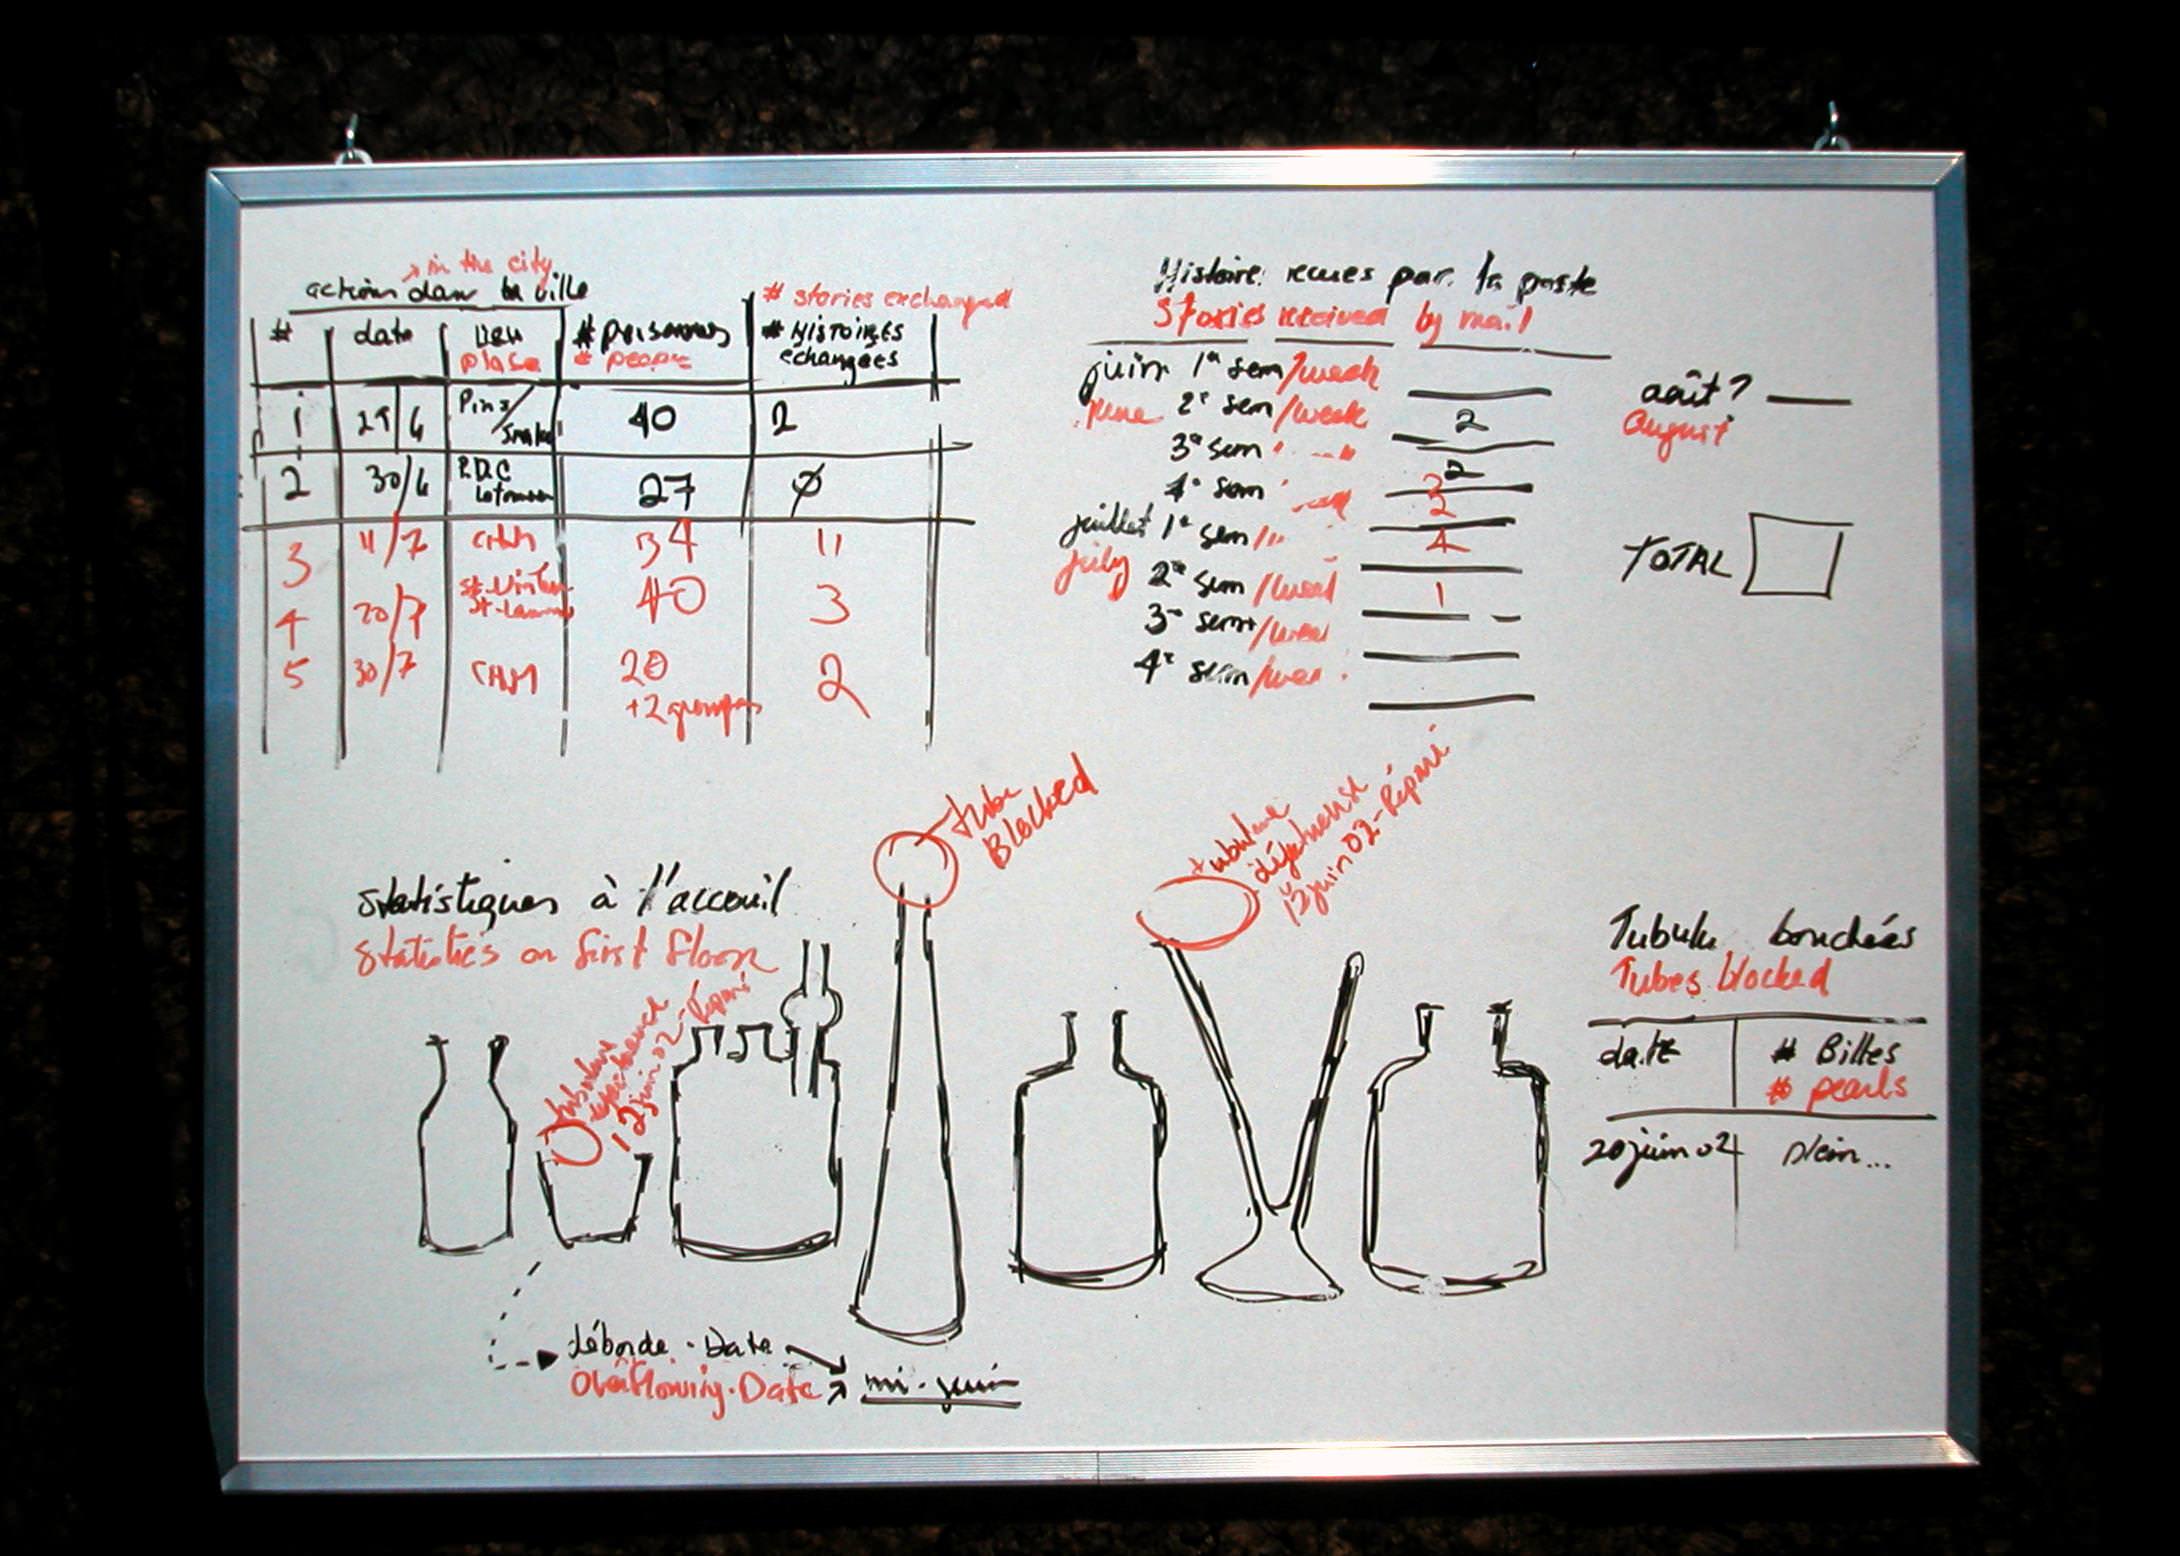 in the city
action dans la ville
# stories exchanged
# date lieu # personnes # Histoires
place # people échangées
1 29/6 Pins/ 40 2
2 30/6 P.D.C 27 Ø
3 11/7 CHM 34 11
4 20/7 40 3
5 30/7 CHM 20 2
+2 groupes
Histoires recues par la poste
Stories received by mail
juin 1e sem/week
June 2e sem/week 2
3e sem " " 2
4e sem
juillet 1e sem/" 4
July 2e sem/week 1
3e sem/week
4e sem/week
août?
August
TOTAL
statistiques à l'acceuil
statistics on first floor
tube
Blocked
tubulure
défectueuse
13 juin 02 - Réparé
tubulure
12 juin 02 - Réparé
déborde - Date
Overflowing - Date
mi-juin
Tubulu bouchées
Tubes blocked
date # Billes
# pearls
20 juin 02 plein...